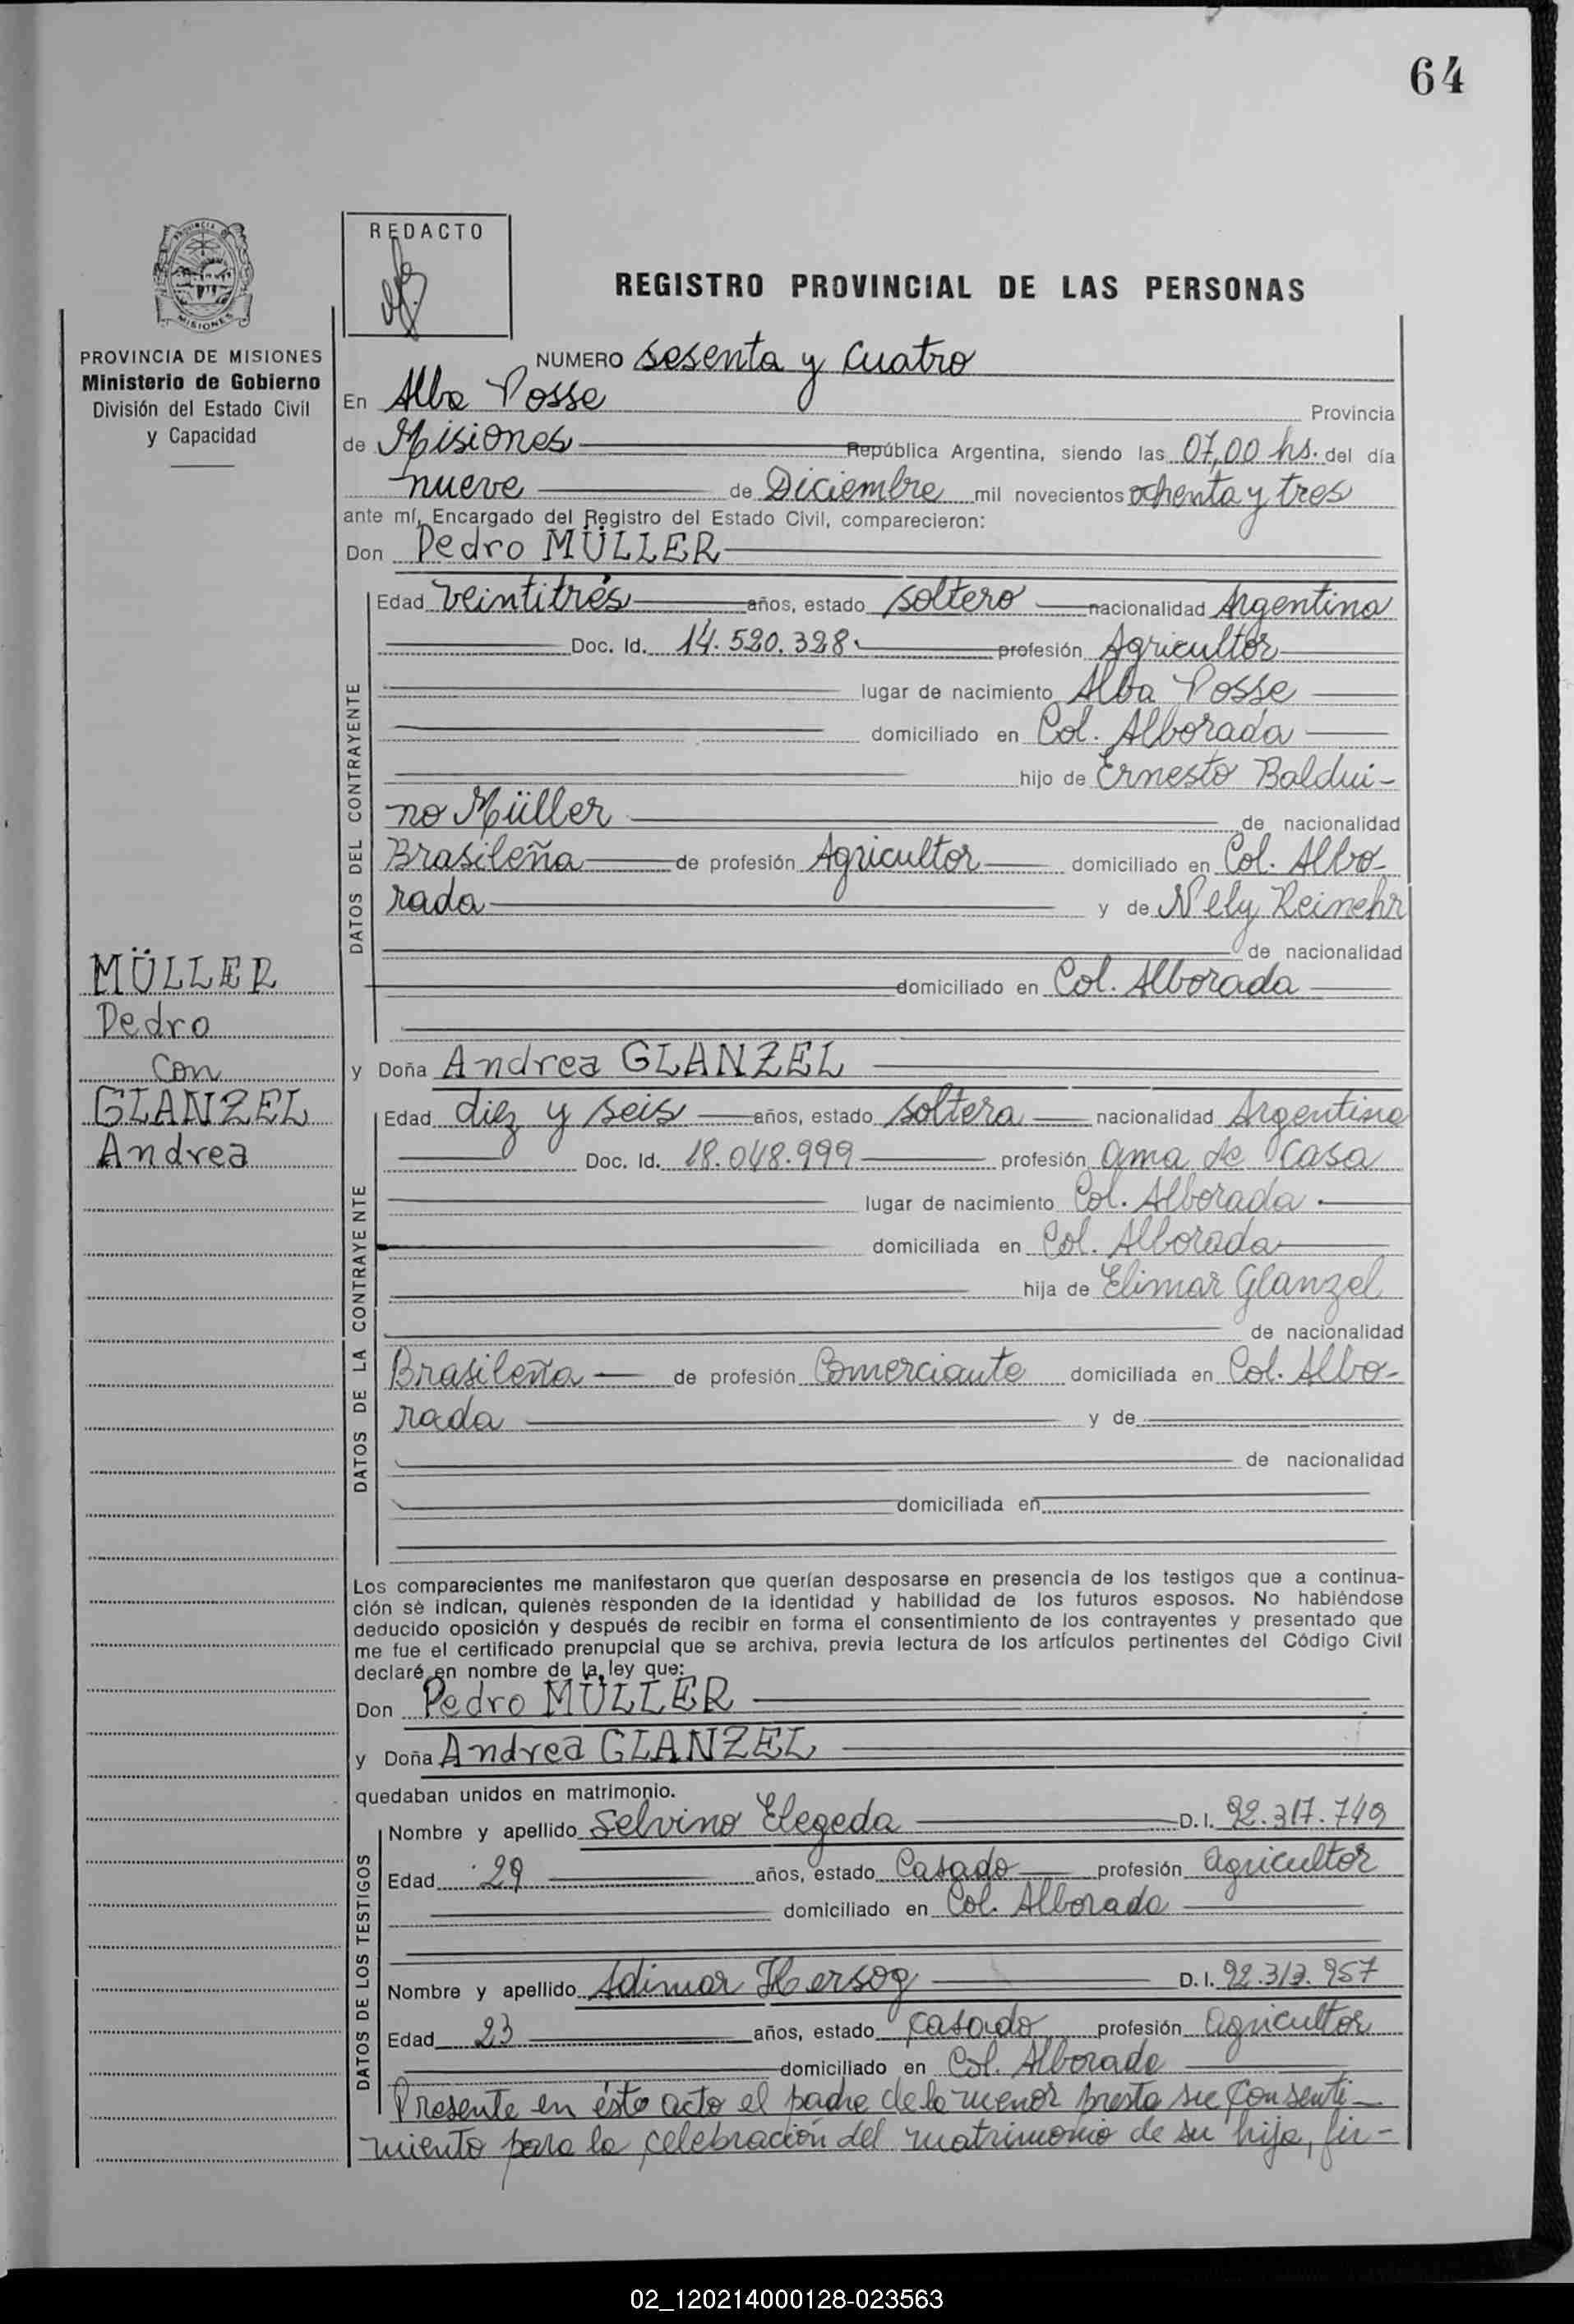 64
REDACTO
REGISTRO PROVINCIAL DE LAS PERSONAS
PROVINCIA DE MISIONES
Ministerio de Gobierno
División del Estado Civil
y Capacidad
NUMERO sesenta y cuatro
En Alba Posse Provincia
de Misiones República Argentina, siendo las 07,00 hs. del día
nueve de Diciembre mil novecientos ochenta y tres
ante mí, Encargado del Registro del Estado Civil, comparecieron:
Don Pedro MÜLLER
DATOS DEL CONTRAYENTE
Edad veintitrés años, estado soltero nacionalidad Argentina
Doc. Id. 14.520.328 profesión Agricultor
lugar de nacimiento Alba Posse
domiciliado en Col. Alborada
hijo de Ernesto Baldui-
no Müller de nacionalidad
Brasileña de profesión Agricultor domiciliado en Col. Albo-
rada y de Nely Reinehr
de nacionalidad
domiciliado en Col. Alborada
MÜLLER
Pedro
con
GLANZEL
Andrea
y Doña Andrea GLANZEL
DATOS DE LA CONTRAYENTE
Edad diez y seis años, estado soltera nacionalidad Argentina
Doc. Id. 18.048.999 profesión ama de casa
lugar de nacimiento Col. Alborada
domiciliada en Col. Alborada
hija de Elimar Glanzel
de nacionalidad
Brasileña de profesión Comerciante domiciliada en Col. Albo-
rada y de
de nacionalidad
domiciliada en
Los comparecientes me manifestaron que querían desposarse en presencia de los testigos que a continua-
ción se indican, quienes responden de la identidad y habilidad de los futuros esposos. No habiéndose
deducido oposición y después de recibir en forma el consentimiento de los contrayentes y presentado que
me fue el certificado prenupcial que se archiva, previa lectura de los artículos pertinentes del Código Civil
declaré en nombre de la ley que:
Don Pedro MÜLLER
y Doña Andrea GLANZEL
quedaban unidos en matrimonio.
DATOS DE LOS TESTIGOS
Nombre y apellido Selvino Elegeda D.I. 92.317.749
Edad 29 años, estado Casado profesión agricultor
domiciliado en Col. Alborada
Nombre y apellido Adimar Hersog D.I.
Edad 23 años, estado casado profesión agricultor
domiciliado en Col. Alborada
Presente en ésto acto el padre de la menor presta su consenti-
miento para la celebración del matrimonio de su hija, fir-
02_120214000128-023563